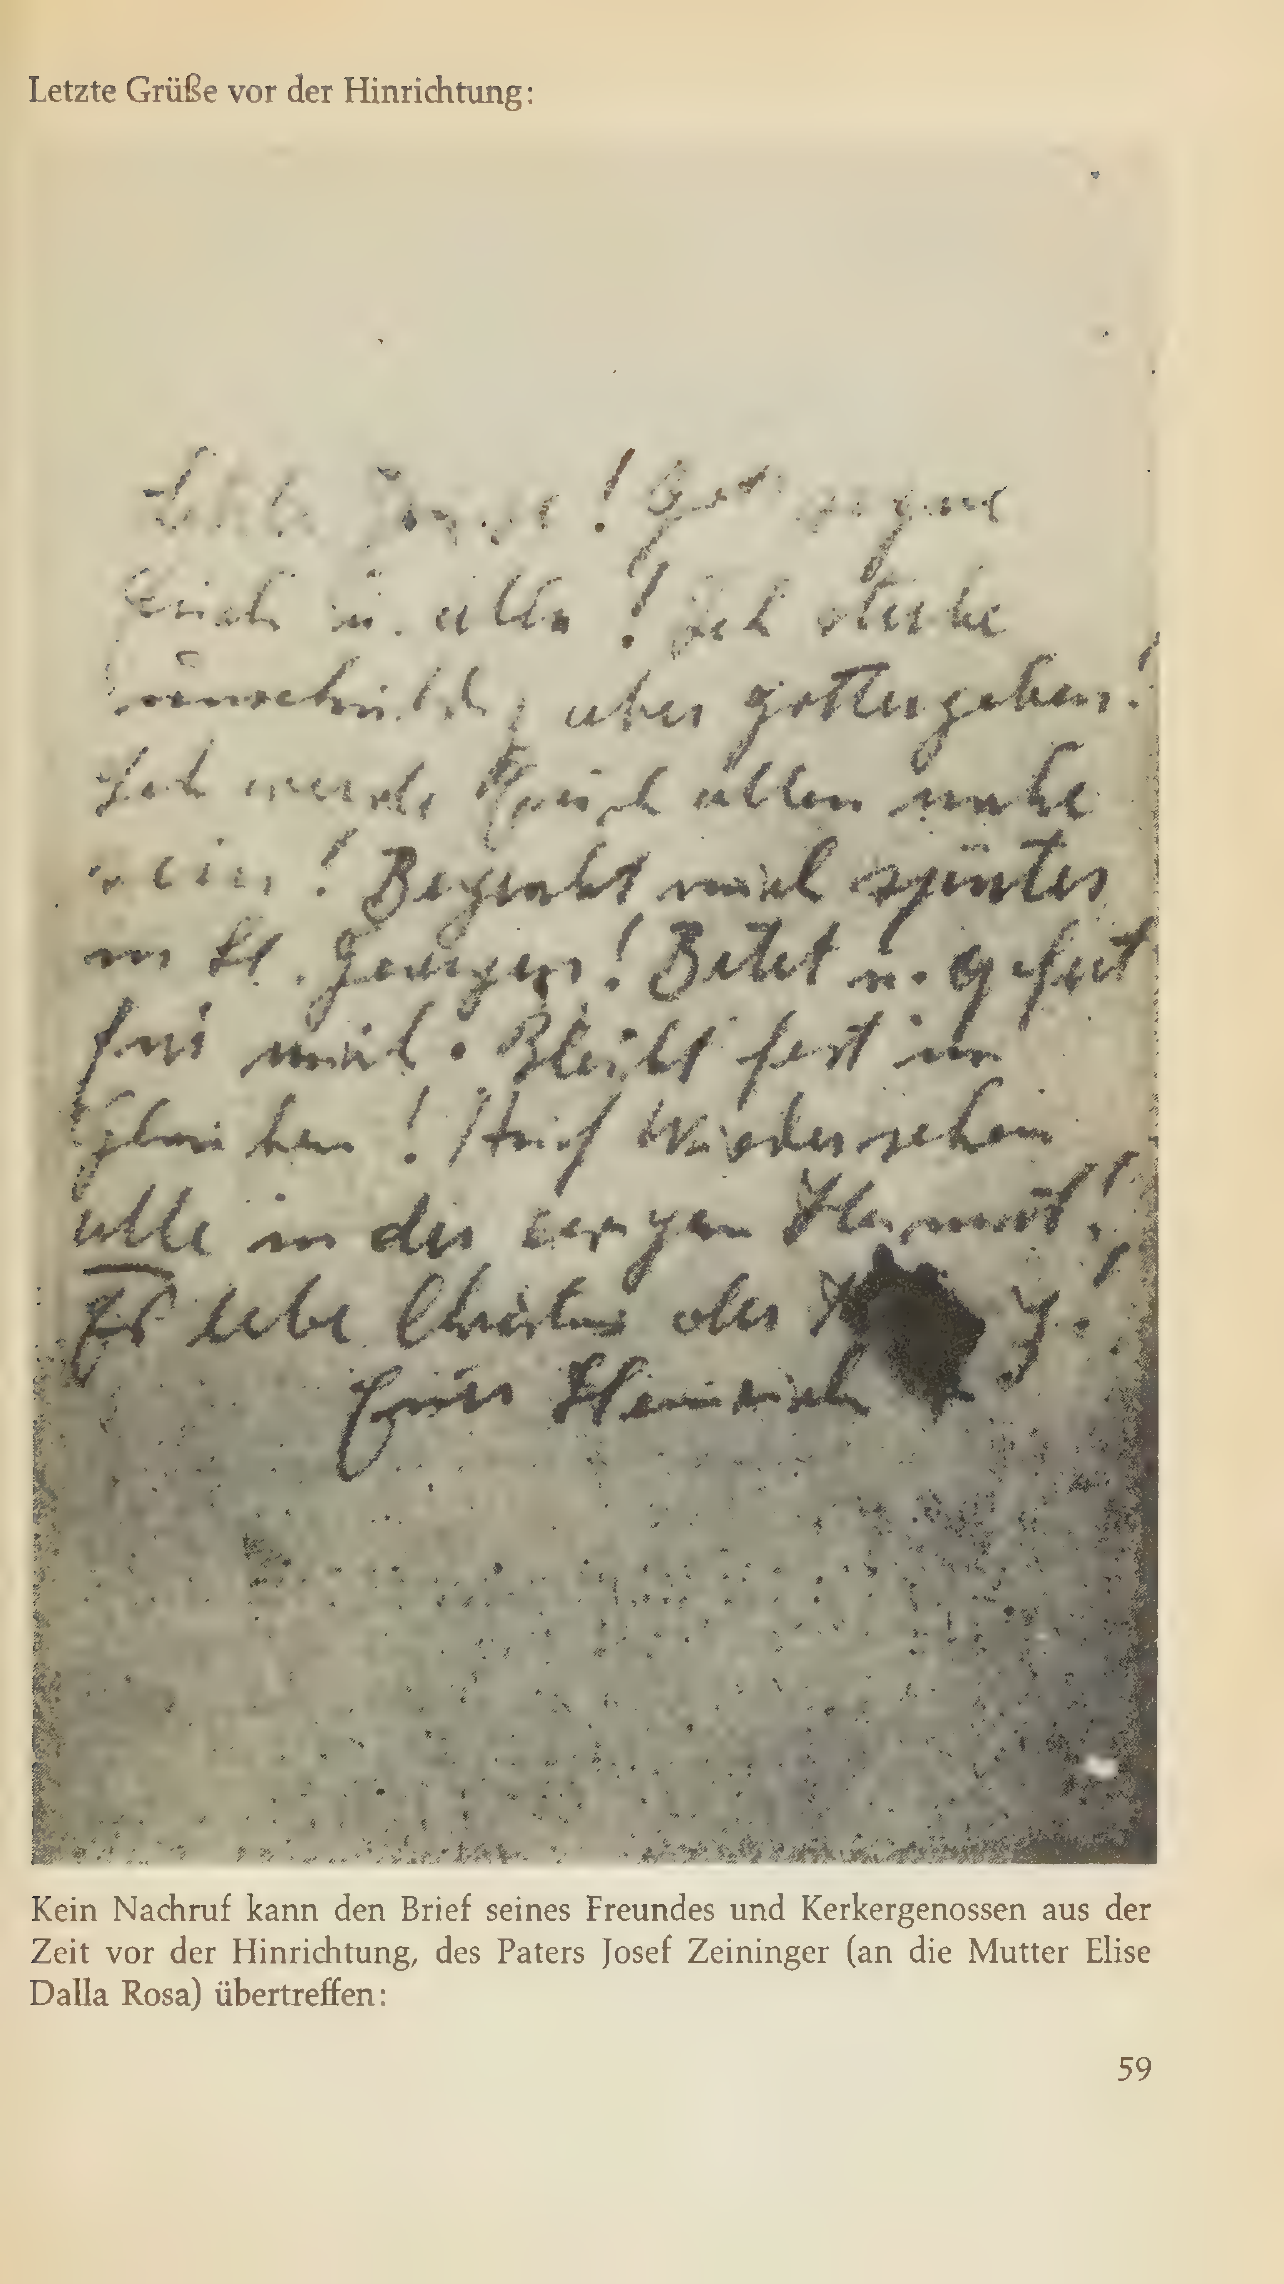 Letzte Grüße vor der Hinrichtung:
! Gott segne
Euch u. alle! Ich sterbe
unschuldig, aber gottergeben!
Ich werde Euch allen nahe
sein! Begrabt mich später
in St. Georgen! Betet u. opfert
für mich. Bleibt fest im
Glauben! Auf Wiedersehen
alle in der ewigen Heimat!
Es lebe Christus der
Euer Heinrich
Kein Nachruf kann den Brief seines Freundes und Kerkergenossen aus der
Zeit vor der Hinrichtung, des Paters Josef Zeininger (an die Mutter Elise
Dalla Rosa) übertreffen:
59